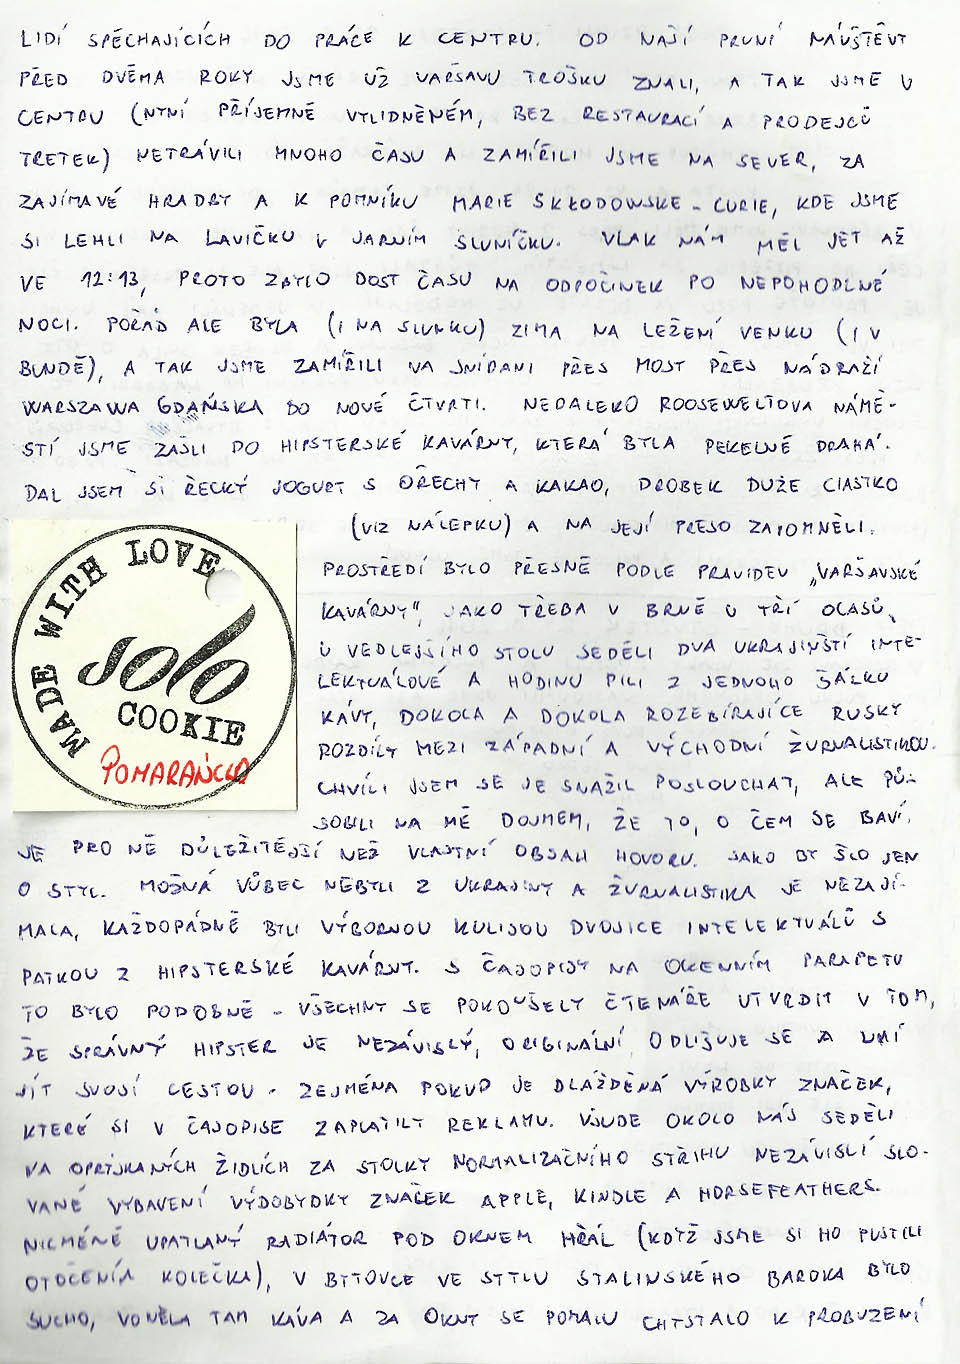 LIDÍ SPĚCHAJÍCÍCH DO PRÁCE K CENTRU. OD NAŠÍ PRVNÍ NÁVŠTĚVY
PŘED DVĚMA ROKY JSME UŽ VARŠAVU TROŠKU ZNALI, A TAK JSME V
CENTRU (NYNÍ PŘÍJEMNĚ VYLIDNĚNÉM, BEZ RESTAURACÍ A PRODEJCŮ
TRETEK) NETRÁVILI MNOHO ČASU A ZAMÍŘILI JSME NA SEVER, ZA
ZAJÍMAVÉ HRADBY A K POMNÍKU MARIE SKŁODOWSKE-CURIE, KDE JSME
SI LEHLI NA LAVIČKU V JARNÍM SLUNÍČKU. VLAK NÁM MĚL JET AŽ
VE 12:13, PROTO ZBYLO DOST ČASU NA ODPOČINEK PO NEPOHODLNÉ
NOCI. POŘÁD ALE BYLA (I NA SLUNKU) ZIMA NA LEŽENÍ VENKU (I V
BUNDĚ), A TAK JSME ZAMÍŘILI NA SNÍDANI PŘES MOST PŘES NÁDRAŽÍ
WARSZAWA GDAŃSKA DO NOVÉ ČTVRTI. NEDALEKO ROOSEWELTOVA NÁMĚ-
STÍ JSME ZAŠLI DO HIPSTERSKÉ KAVÁRNY, KTERÁ BYLA PEKELNĚ DRAHÁ.
DAL JSEM SI ŘECKÝ JOGURT S OŘECHY A KAKAO, DROBEK DUŽE CIASTKO
(VIZ NÁLEPKU) A NA JEJÍ PRESO ZAPOMNĚLI.
PROSTŘEDÍ BYLO PŘESNĚ PODLE PRAVIDEL „VARŠAVSKÉ
KAVÁRNY", JAKO TŘEBA V BRNĚ U TŘÍ OCASŮ,
U VEDLEJŠÍHO STOLU SEDĚLI DVA UKRAJINŠTÍ INTE-
LEKTUÁLOVÉ A HODINU PILI Z JEDNOHO ŠÁLKU
KÁVY, DOKOLA A DOKOLA ROZEBÍRAJÍCE RUSKY
ROZDÍLY MEZI ZÁPADNÍ A VÝCHODNÍ ŽURNALISTIKOU.
CHVÍLI JSEM SE JE SNAŽIL POSLOUCHAT, ALE PŮ-
SOBILI NA MĚ DOJMEM, ŽE TO, O ČEM SE BAVÍ,
JE PRO NĚ DŮLEŽITĚJŠÍ NEŽ VLASTNÍ OBSAH HOVORU. JAKO BY ŠLO JEN
O STYL. MOŽNÁ VŮBEC NEBYLI Z UKRAJINY A ŽURNALISTIKA JE NEZAJÍ-
MALA, KAŽDOPÁDNĚ BYLI VÝBORNOU KULISOU DVOJICE INTELEKTUÁLŮ S
PATKOU Z HIPSTERSKÉ KAVÁRNY. S ČASOPISY NA OKENNÍM PARAPETU
TO BYLO PODOBNĚ - VŠECHNY SE POKOUŠELY ČTENÁŘE UTVRDIT V TOM,
ŽE SPRÁVNÝ HIPSTER JE NEZÁVISLÝ, ORIGINÁLNÍ, ODLIŠUJE SE A UMÍ
JÍT SVOJÍ CESTOU - ZEJMÉNA POKUD JE DLÁŽDĚNÁ VÝROBKY ZNAČEK,
KTERÉ SI V ČASOPISE ZAPLATILY REKLAMU. VŠUDE OKOLO NÁS SEDĚLI
NA OPRÝSKANÝCH ŽIDLÍCH ZA STOLKY NORMALIZAČNÍHO STŘIHU NEZÁVISLÍ SLO-
VANÉ VYBAVENÍ VÝDOBYDKY ZNAČEK APPLE, KINDLE A HORSEFEATHERS.
NICMÉNĚ UPATLANÝ RADIÁTOR POD OKNEM HŘÁL (KDYŽ JSME SI HO PUSTILI
OTOČENÍM KOLEČKA), V BYTOVCE VE STYLU STALINSKÉHO BAROKA BYLO
SUCHO, VONĚLA TAM KÁVA A ZA OKNY SE POMALU CHYSTALO K PROBUZENÍ
MADE WITH LOVE
solo
COOKIE
POMARAŃCZA